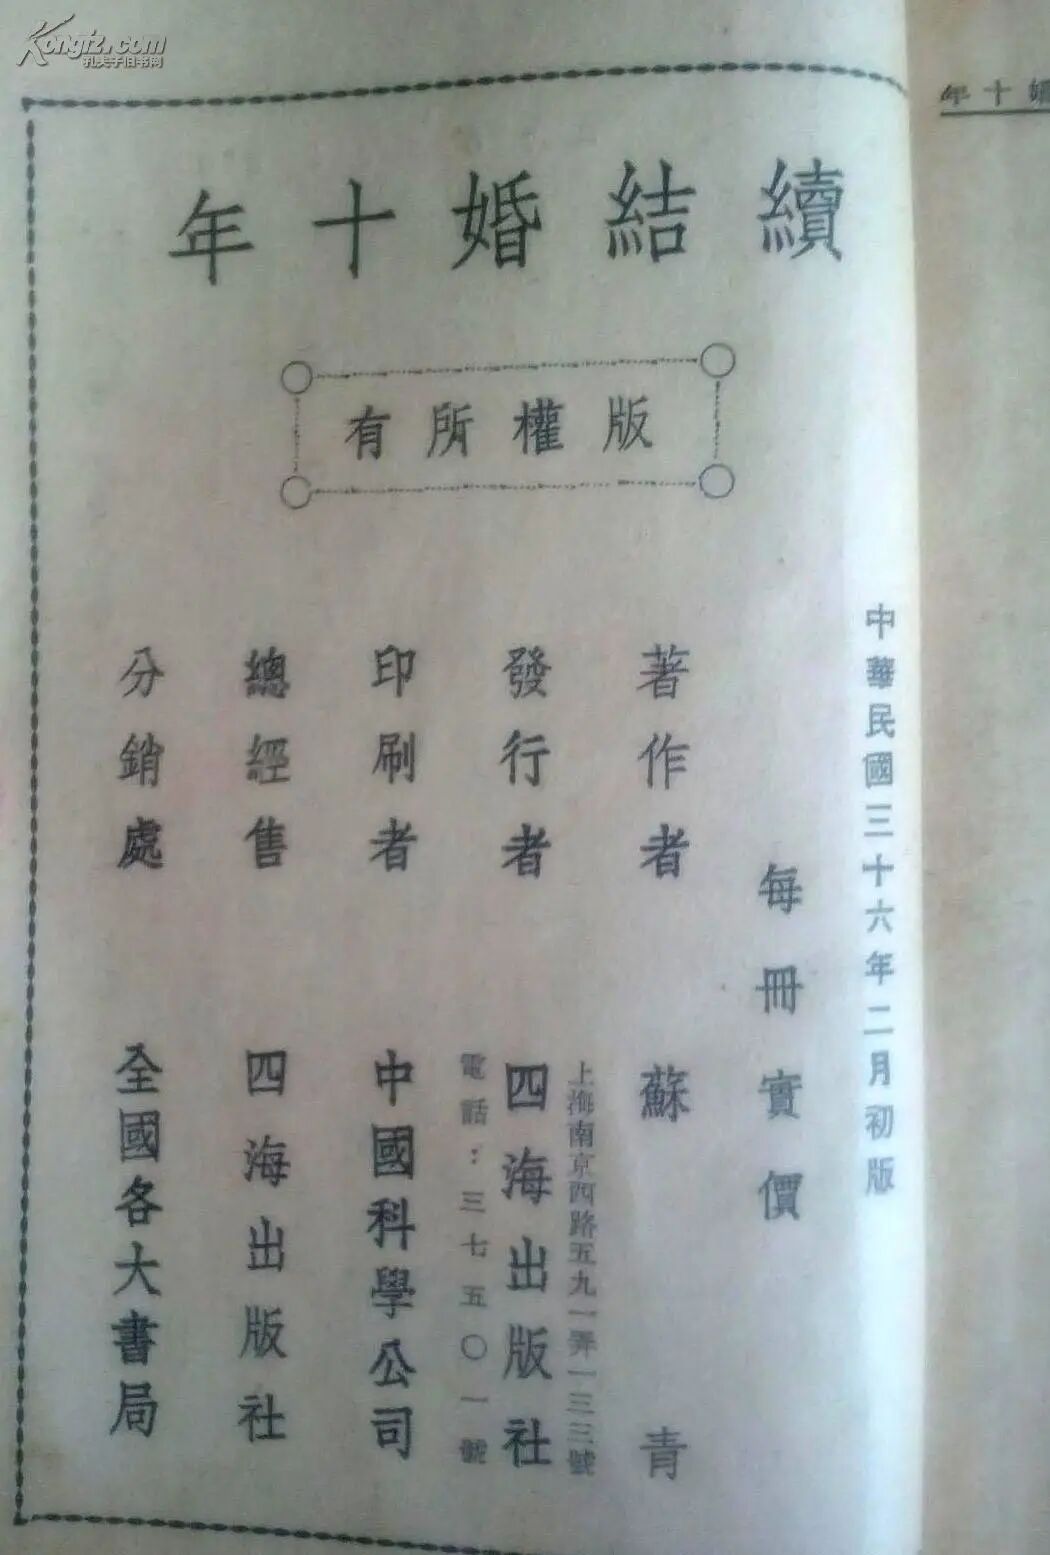 Kongfz.com
孔夫子旧书网
婚十年
續結婚十年
版權所有
中華民國三十六年二月初版
每冊實價
著作者 蘇青
上海南京西路五九一弄一三三號
發行者 四海出版社
電話：三七五〇一號
印刷者 中國科學公司
總經售 四海出版社
分銷處 全國各大書局